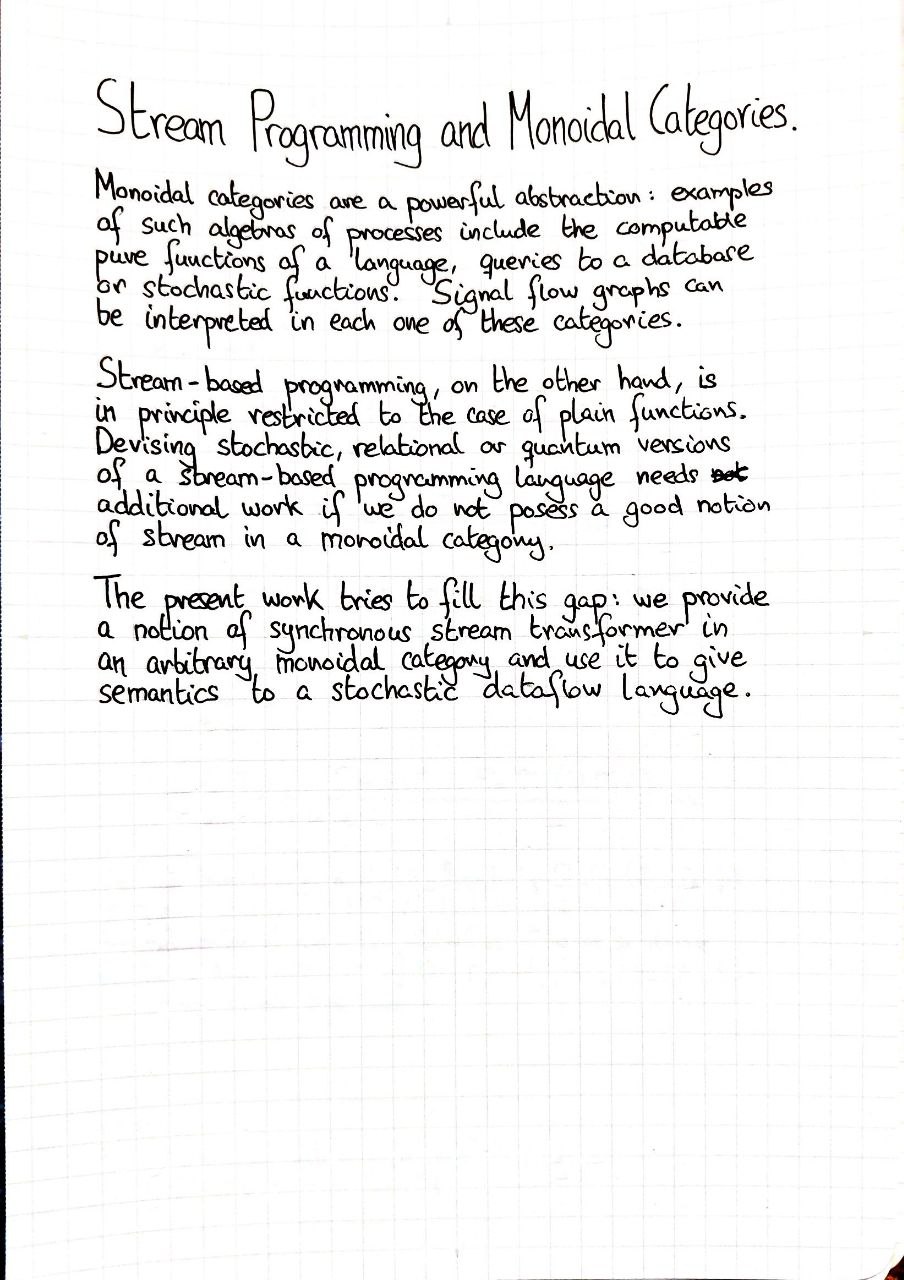 Stream Programming and Monoidal Categories.
Monoidal categories are a powerful abstraction: examples
of such algebras of processes include the computable
pure functions of a language, queries to a database
or stochastic functions. Signal flow graphs can
be interpreted in each one of these categories.
Stream-based programming, on the other hand, is
in principle restricted to the case of plain functions.
Devising stochastic, relational or quantum versions
of a stream-based programming language needs
additional work if we do not posess a good notion
of stream in a monoidal category.
The present work tries to fill this gap: we provide
a notion of synchronous stream transformer in
an arbitrary monoidal category and use it to give
semantics to a stochastic dataflow language.